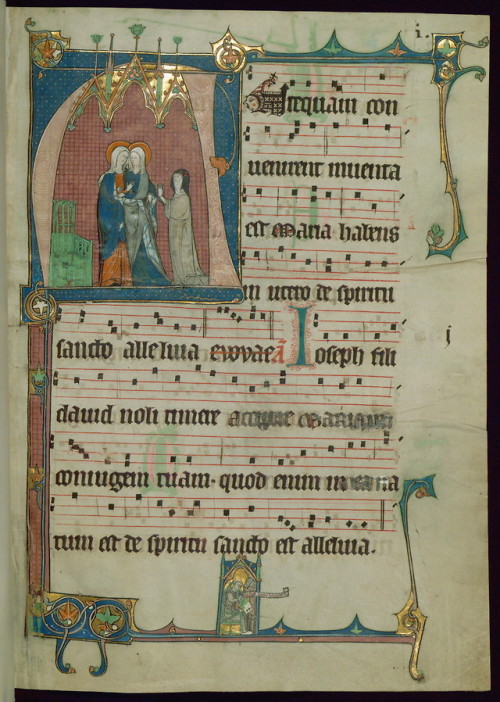 i.
Antequam con
uenirent inuenta
est maria habens
in utero de spiritu
sancto alleluia euouae a Ioseph fili
i
dauid noli timere accipere mariam
coniugem tuam. quod enim in ea na
tum est de spiritu sancto est alleluia.